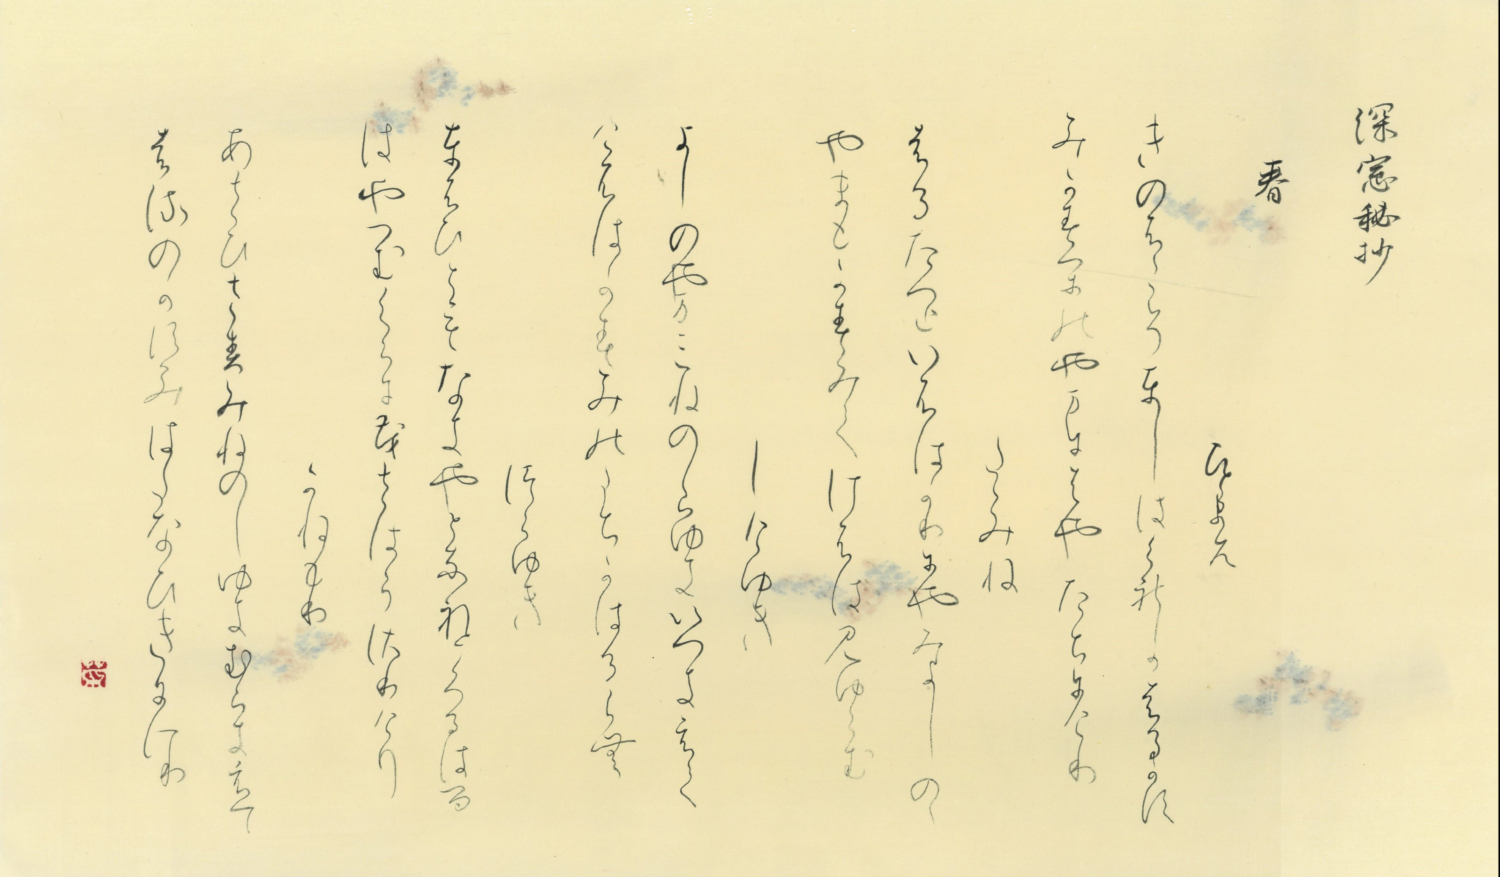 深窓秘抄
春
ひとまろ
きのふこそとしはくれしかはるかす
みかすかのやまにはやたちにけり
たゝみね
はるたつといふはかりにやみよしの
やまもかすみてけさは見ゆらむ
しけゆき
よしのやまみねのしらゆきいつきえて
けさはかすみのたちかはるらむ
つらゆき
とふひともなきやとなれとくるはる
はやへむくらにもさはらさりけり
かねもり
あさひさすみねのしらゆきむらきえて
はるのかすみはたなひきにけり